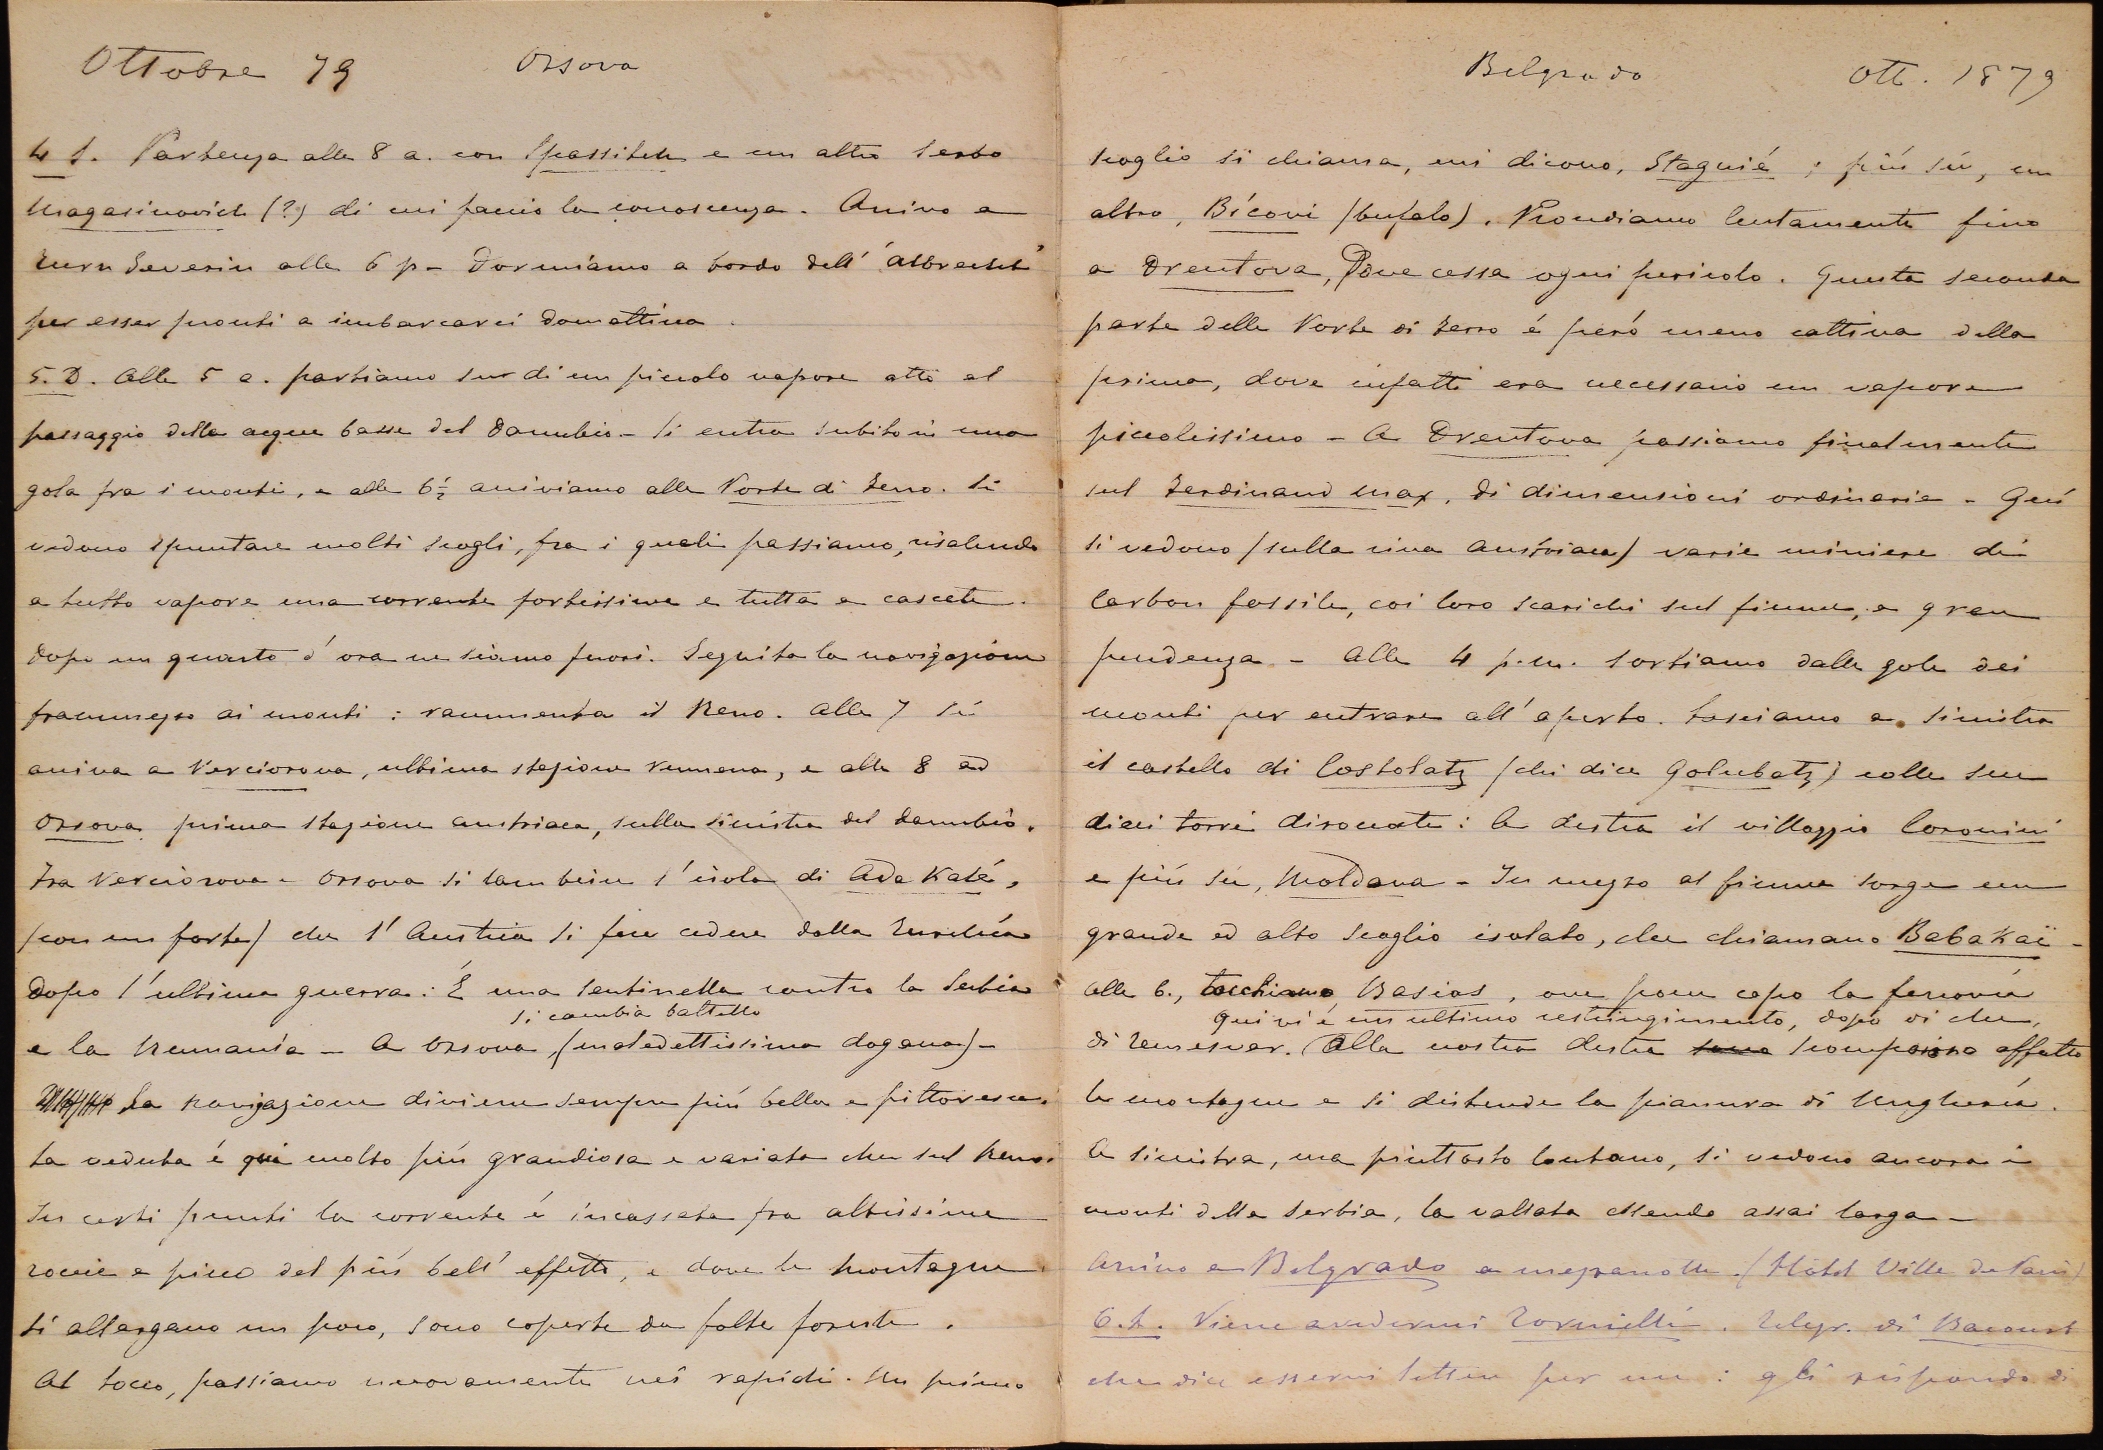 Ottobre 79 Orsova
4 S. Partenza alle 8 a. con Spassitch e un altro Serbo
Magasinovich (?) di cui faccio la conoscenza. Arrivo a
Turn Severin alle 6 p - Dormiamo a bordo dell' "Albrecht"
per esser pronti a imbarcarci domattina.
5. D. Alle 5 a. partiamo sur di un piccolo vapore atto al
passaggio delle acque basse del Danubio - Si entra subito in una
gola fra i monti, e alle 6½ arriviamo alle Porte di Ferro. Si
vedono spuntare molti scogli, fra i quali passiamo, risalendo
a tutto vapore una corrente fortissima e tutta a cascate.
Dopo un quarto d'ora ne siamo fuori. Seguita la navigazione
frammezzo ai monti: rammenta il Reno. Alle 7 si
arriva a Verciorova, ultima stazione rumena, e alle 8 ad
Orsova prima stazione austriaca, sulla sinistra del Danubio.
Fra Verciorova e Orsova si lambisce l'isola di Ada Kalé,
(con un forte) che l'Austria si fece cedere dalla Turchia
dopo l'ultima guerra: È una sentinella contro la Serbia
si cambia battello
e la Rumania - A Orsova, (maledettissima dogana) -
La navigazione diviene sempre più bella e pittoresca.
La veduta é qui molto più grandiosa e variata che sul Reno.
In certi punti la corrente é incassata fra altissime
roccie a picco del più bell' effetto, e dove le montagne
si allargano un poco, sono coperte da folte foreste.
Al tocco, passiamo nuovamente nei rapidi. Un primo
Belgrado Ott. 1879
scoglio si chiama, mi dicono, Stagnié; più sù, un
altro, Bícovi (bufalo). Procediamo lentamente fino
a Drentova, Dove cessa ogni pericolo. Questa seconda
parte delle Porte di Ferro é però meno cattiva della
prima, dove infatti era necessario un vapore
piccolissimo - A Drentova passiamo finalmente
sul Ferdinand Max, di dimensioni ordinarie - Qui
si vedono (sulla riva austriaca) varie miniere di
Carbon fossile, coi loro scarichi sul fiume, a gran
pendenza - Alle 4 p.m. sortiamo dalle gole dei
monti per entrare all' aperto. Lasciamo a sinistra
il castello di Costolatz (chi dice Golubatz) colle sue
dieci torri diroccate: A destra il villaggio Coronini
e più sù, Moldava - In mezzo al fiume sorge un
grande ed alto scoglio isolato, che chiamano Babakaï -
Alle 6., tocchiamo Basias, ove pone capo la ferrovia
Qui vi é un ultimo restringimento, dopo di che,
di Temesvar. Alla nostra destra sono scompaiono affatto
le montagne e si distende la pianura di Ungheria.
A sinistra, ma piuttosto lontano, si vedono ancora i
monti della Serbia, la vallata essendo assai larga -
Arrivo a Belgrado a mezzanotte. (Hôtel Ville de Paris)
6. L. Viene a vedermi Tornielli. Telegr. di Bacourt
che dice esservi lettere per me: gli rispondo di